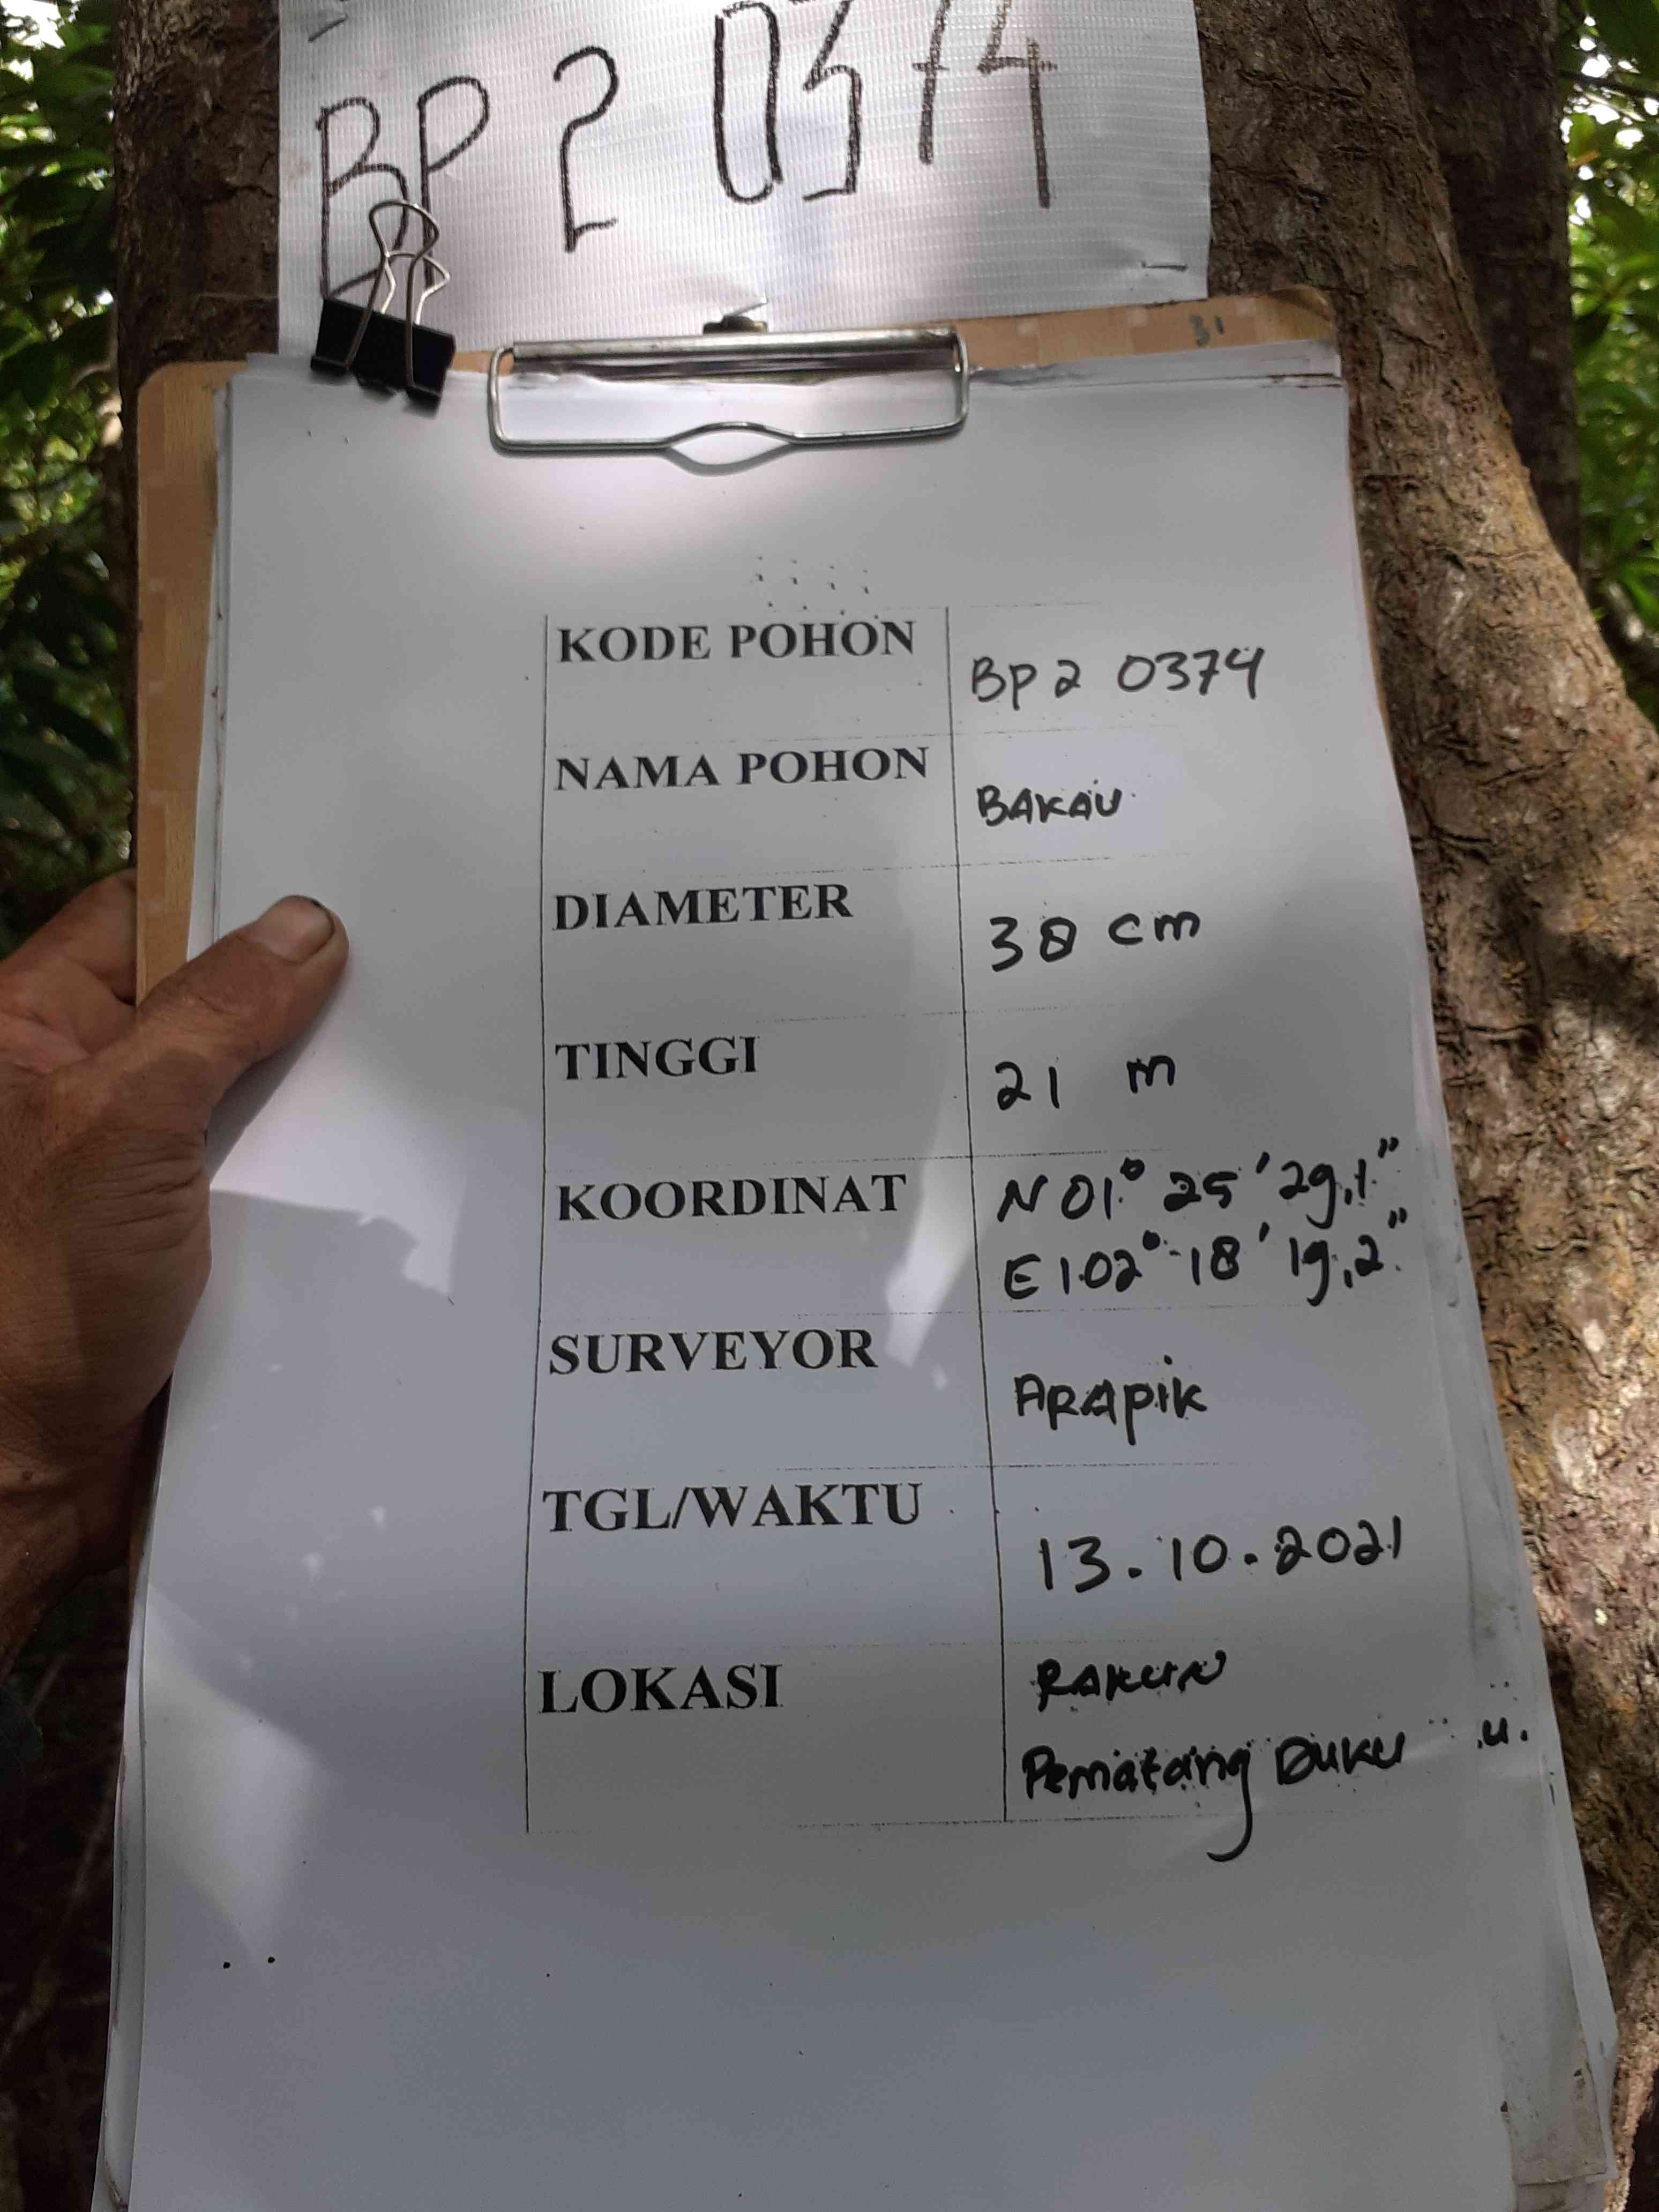 BP 2 0374
31
KODE POHON BP 2 0374
NAMA POHON BAKAU
DIAMETER 38 cm
TINGGI 21 m
KOORDINAT N 01° 25' 29,1"
E 102° 18' 19,2"
SURVEYOR ARAPIK
TGL/WAKTU 13.10.2021
LOKASI
Pematang Duku